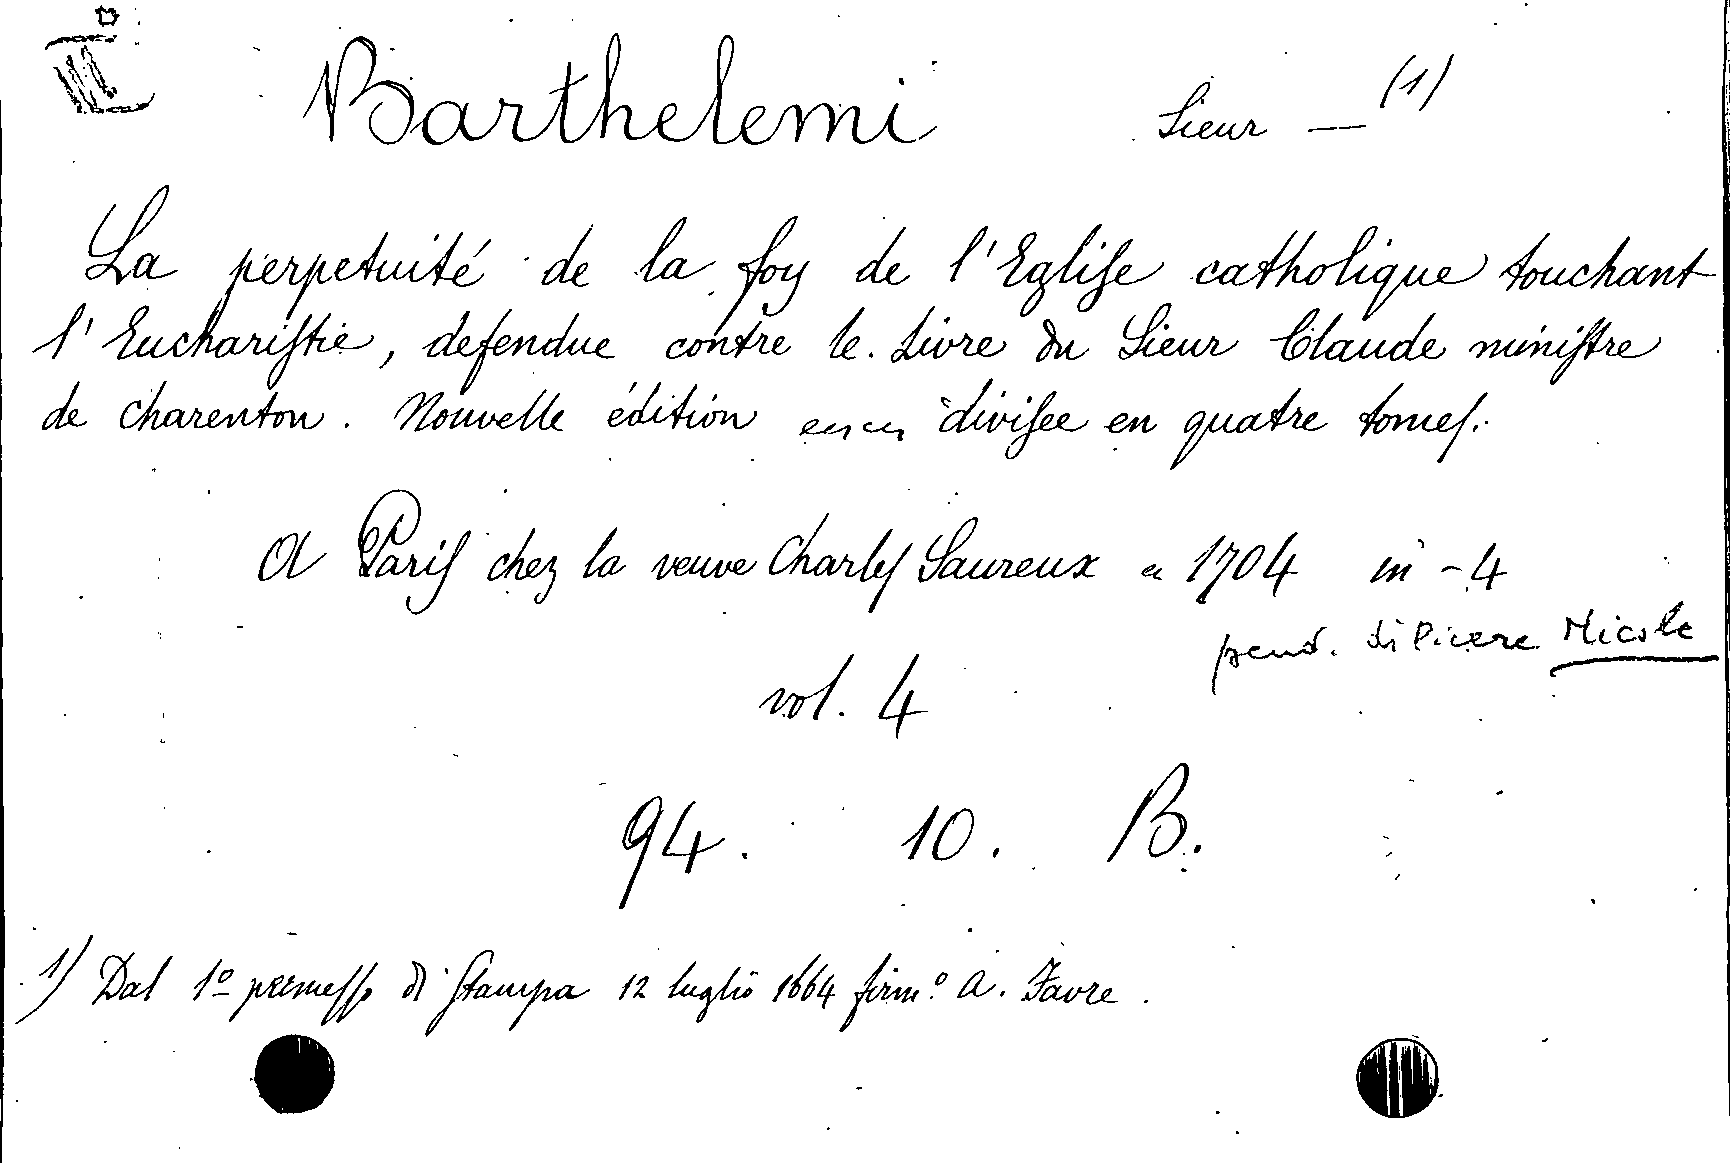 Barthelemi Sieur — (1)
La perpetuité de la foy de l'Egliſe catholique touchant
l'Euchariſtie, defendue contre le Livre du Sieur Claude miniſtre
de Charenton. Nouvelle édition diviſee en quatre tomeſ.
A Pariſ chez la veuve Charleſ Saureux 1704 in-4
pseud. di Pierre Nicole
vol. 4
94. 10. B.
1) Dal 1º permeſſo di ſtampa 12 luglio 1664 firm.º A. Favre.